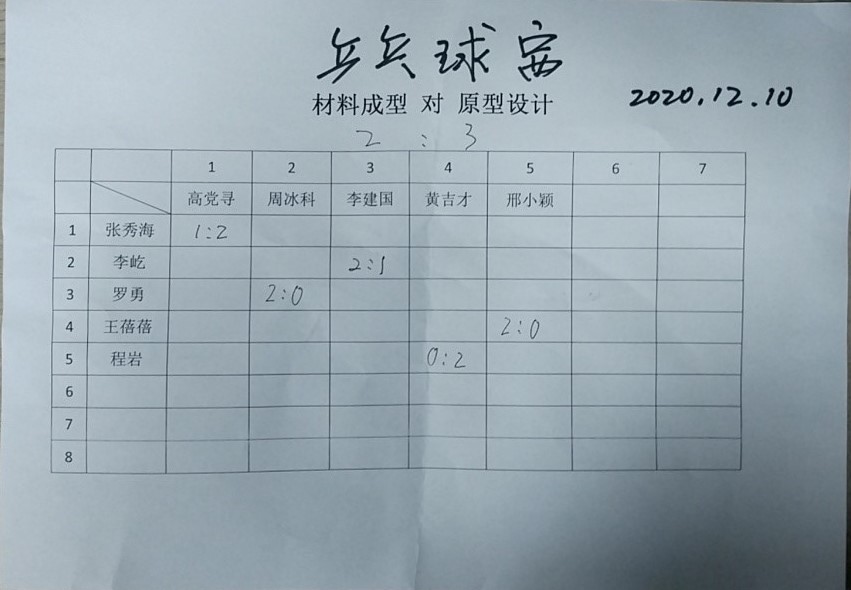 乒乓球赛
材料成型 对 原型设计
2020.12.10
2 : 3
1 2 3 4 5 6 7
高党寻 周冰科 李建国 黄吉才 邢小颖
1 张秀海 1:2
2 李屹 2:1
3 罗勇 2:0
4 王蓓蓓 2:0
5 程岩 0:2
6
7
8